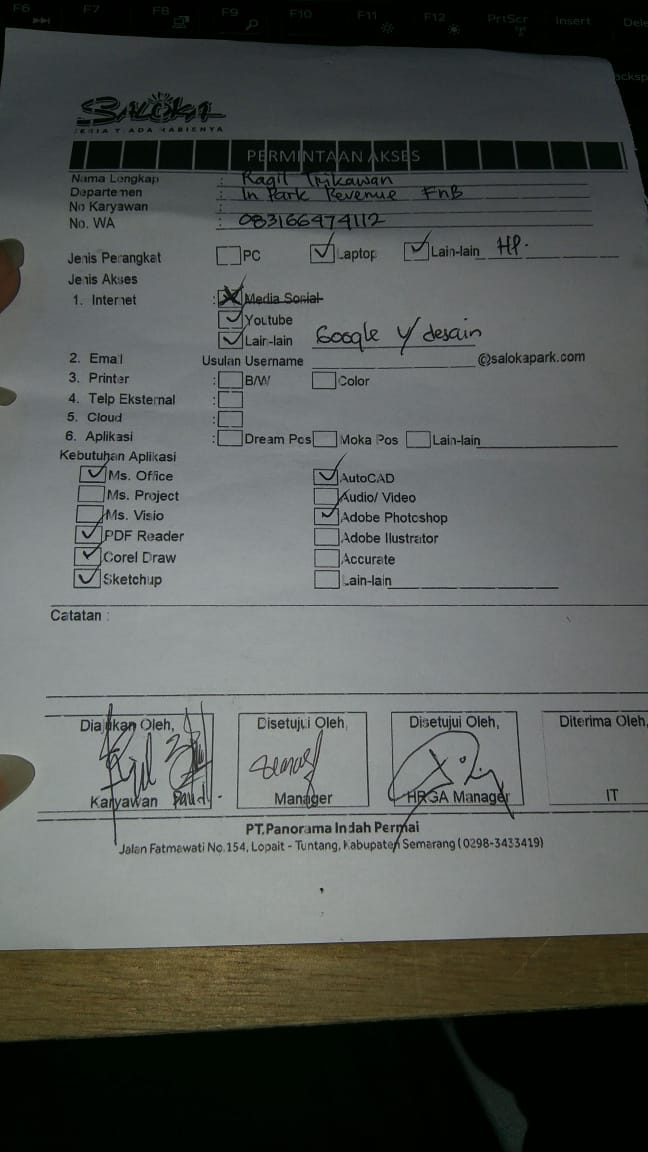 F6 F7 F8 F9 F10 F11 F12 PrtScr Insert Dele
Backsp
SALOKA
CERIA TIADA HABISNYA
PERMINTAAN AKSES
Nama Lengkap : Ragil Trikawan
Departemen : In Park Revenue FnB
No Karyawan :
No. WA : 083166474112
Jenis Perangkat PC Laptop Lain-lain HP.
Jenis Akses
1. Internet : Media Sosial
Youtube
Lain-lain Google u/ desain
2. Email Usulan Username @salokapark.com
3. Printer : B/W Color
4. Telp Eksternal :
5. Cloud :
6. Aplikasi : Dream Pos Moka Pos Lain-lain
Kebutuhan Aplikasi
Ms. Office AutoCAD
Ms. Project Audio/ Video
Ms. Visio Adobe Photoshop
PDF Reader Adobe Ilustrator
Corel Draw Accurate
Sketchup Lain-lain
Catatan :
Diajukan Oleh, Disetujui Oleh, Disetujui Oleh, Diterima Oleh,
Karyawan Manager HRGA Manager IT
PT.Panorama Indah Permai
Jalan Fatmawati No.154, Lopait - Tuntang, Kabupaten Semarang (0298-3433419)